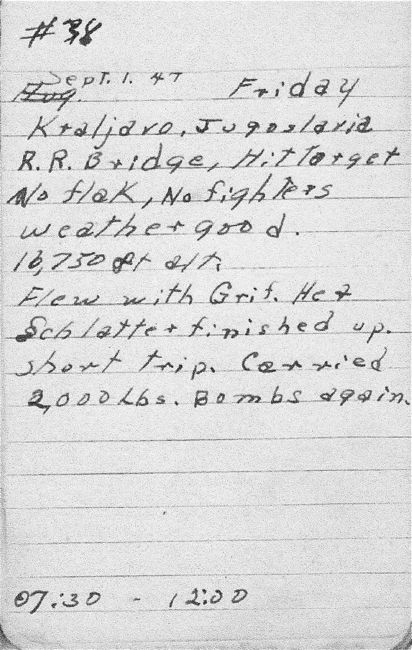 #38
Sept. 1. 44
Aug. Friday
Kraljavo, Jugoslavia
R.R. Bridge, Hit Target
No flak, No fighters
weather good.
16,750 ft alt.
Flew with Grif. He &
Schlatter finished up.
short trip. Carried
2,000 Lbs. Bombs again.
07:30 - 12:00